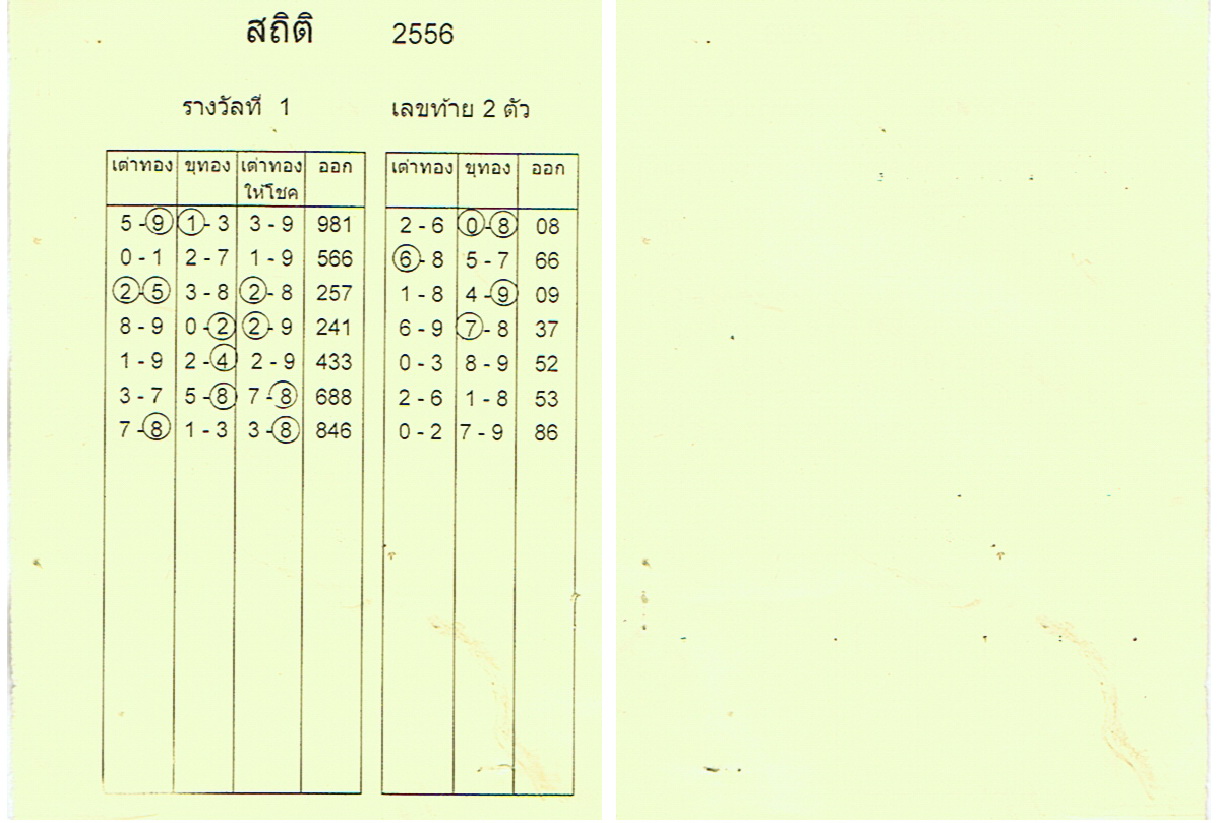 สถิติ 2556
รางวัลที่ 1 เลขท้าย 2 ตัว
เต่าทอง ขุทอง เต่าทอง ออก เต่าทอง ขุทอง ออก
ให้โชค
5-9 1-3 3-9 981 2-6 0-8 08
0-1 2-7 1-9 566 6-8 5-7 66
2-5 3-8 2-8 257 1-8 4-9 09
8-9 0-2 2-9 241 6-9 7-8 37
1-9 2-4 2-9 433 0-3 8-9 52
3-7 5-8 7-8 688 2-6 1-8 53
7-8 1-3 3-8 846 0-2 7-9 86